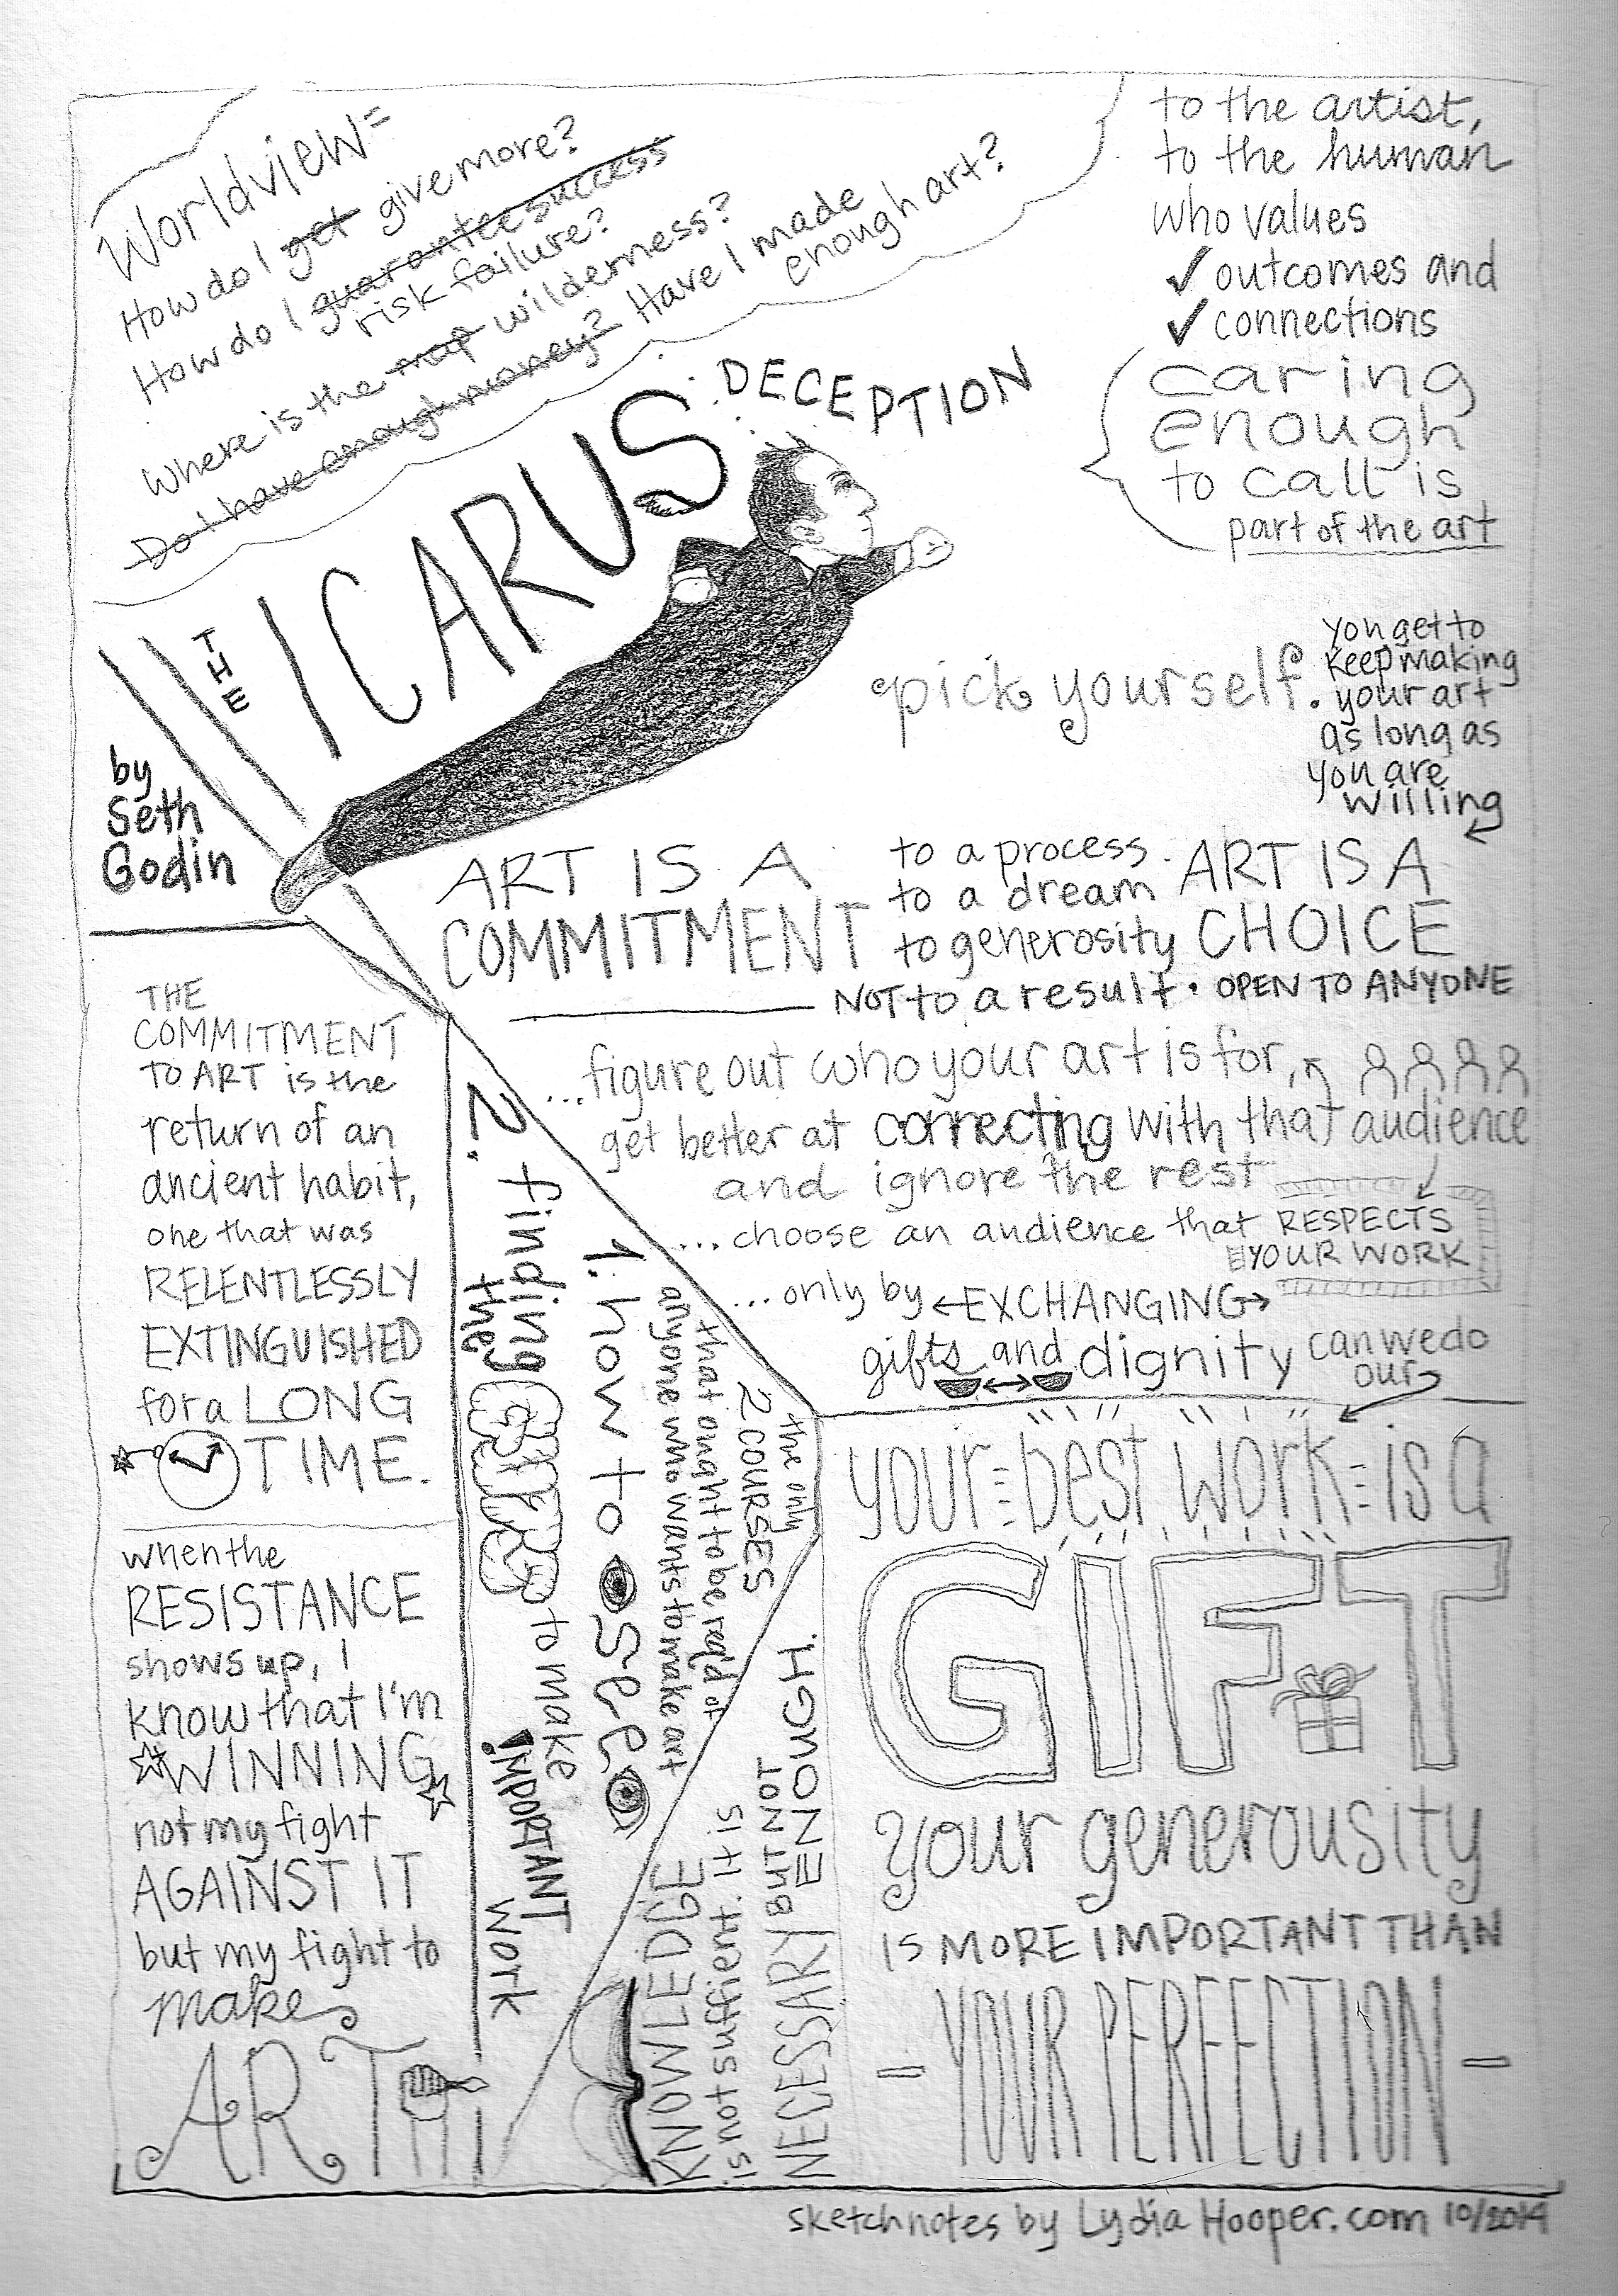 Worldview=
How do I get give more?
How do I guarantee success
risk failure?
Where is the map wilderness?
Do I have enough money? Have I made
enough art?
THE
ICARUS
DECEPTION
by
Seth
Godin
to the artist,
to the human
who values
✓ outcomes and
✓ connections
caring
enough
to call is
part of the art
pick yourself.
you get to
keep making
your art
as long as
you are
willing
ART IS A
COMMITMENT
to a process
to a dream
to generosity
NOT to a result.
ART IS A
CHOICE
OPEN TO ANYONE
...figure out who your art is for,
get better at connecting with that audience
and ignore the rest
...choose an audience that RESPECTS
YOUR WORK
...only by ←EXCHANGING→
gifts and dignity can we do
our
your best work is a
GIFT
your generousity
IS MORE IMPORTANT THAN
- YOUR PERFECTION -
THE
COMMITMENT
TO ART is the
return of an
ancient habit,
one that was
RELENTLESSLY
EXTINGUISHED
for a LONG
TIME.
when the
RESISTANCE
shows up, I
know that I'm
WINNING
not my fight
AGAINST IT
but my fight to
make
ART
the only
2 COURSES
that ought to be req'd of
anyone who wants to make art
1. how to see
2. finding
the
GUTS
to make
IMPORTANT
work
KNOWLEDGE
is not sufficient. It is
NECESSARY but NOT
ENOUGH.
sketchnotes by Lydia Hooper.com 10/2014